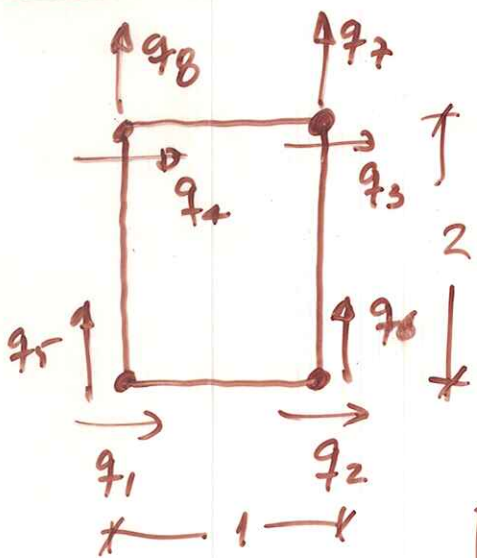 q8 q7
q4 q3
2
q5 q6
q1 q2
1